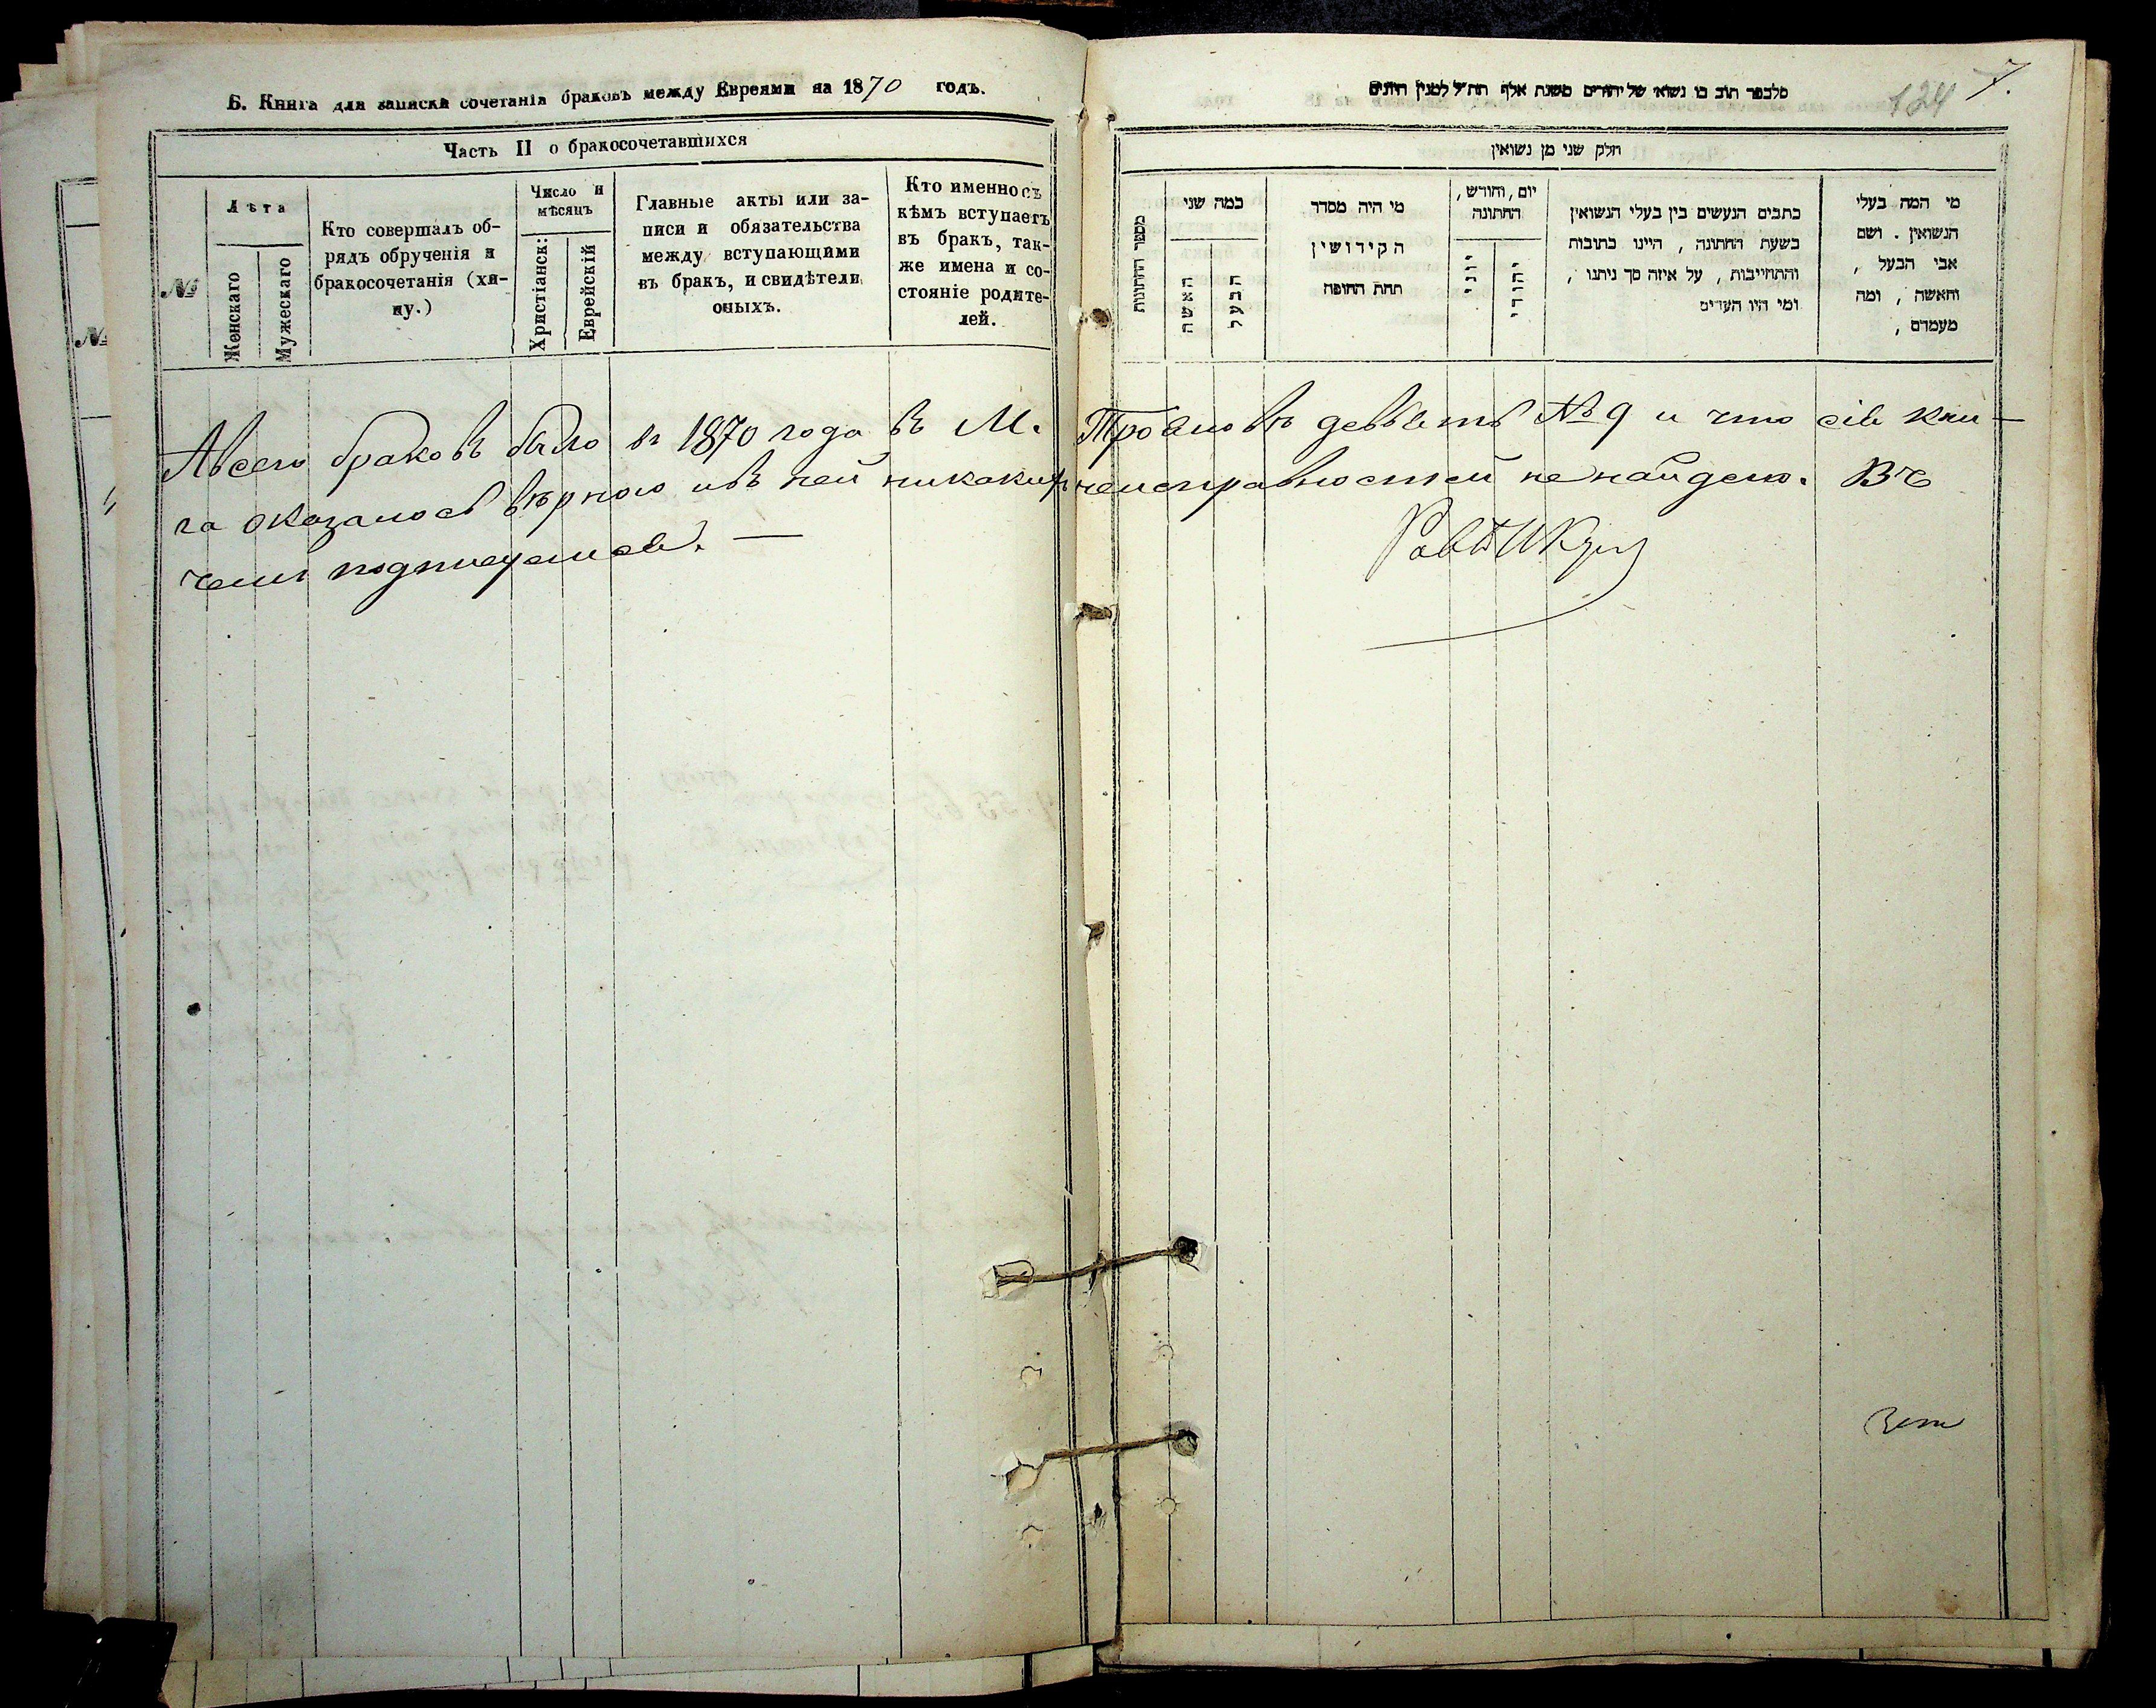 Б. Книга для записки сочетанія браковъ между Евреями на 1870 годъ.
Часть II о бракосочетавшихся
№
Лѣта
Женскаго
Мужескаго
Кто совершалъ об-
рядъ обрученія и
бракосочетанія (хи-
пу.)
Число и
мѣсяцъ
Христіанск:
Еврейскій
Главные акты или за-
писи и обязательства
между вступающими
въ бракъ, и свидѣтели
оныхъ.
Кто именно съ
кѣмъ вступаетъ
въ бракъ, так-
же имена и со-
стояніе родите-
лей.
№
124
7.
חלק שני מן נשואין
מספר החתונות
כמה שני
האשה
הבעל
מי היה מסדר
הקידושין
תחת החופה
יום, וחודש,
החתונה
יוני
יהודי
כתבים הנעשים בין בעלי הנשואין
בשעת החתונה, היינו כתובות
והתחייבות, על איזה סך ניתנו,
ומי היו העדים
מי המה בעלי
הנשואין. ושם
אבי הבעל,
והאשה, ומה
מעמדם,
Авсего браковъ было въ 1870 года въ М. Трояновѣ девять №9 и что сія кни-
га оказалось вѣрною ивъ ней никакихъ неисправностей не найдено. Въ
чемъ подписуемся. —